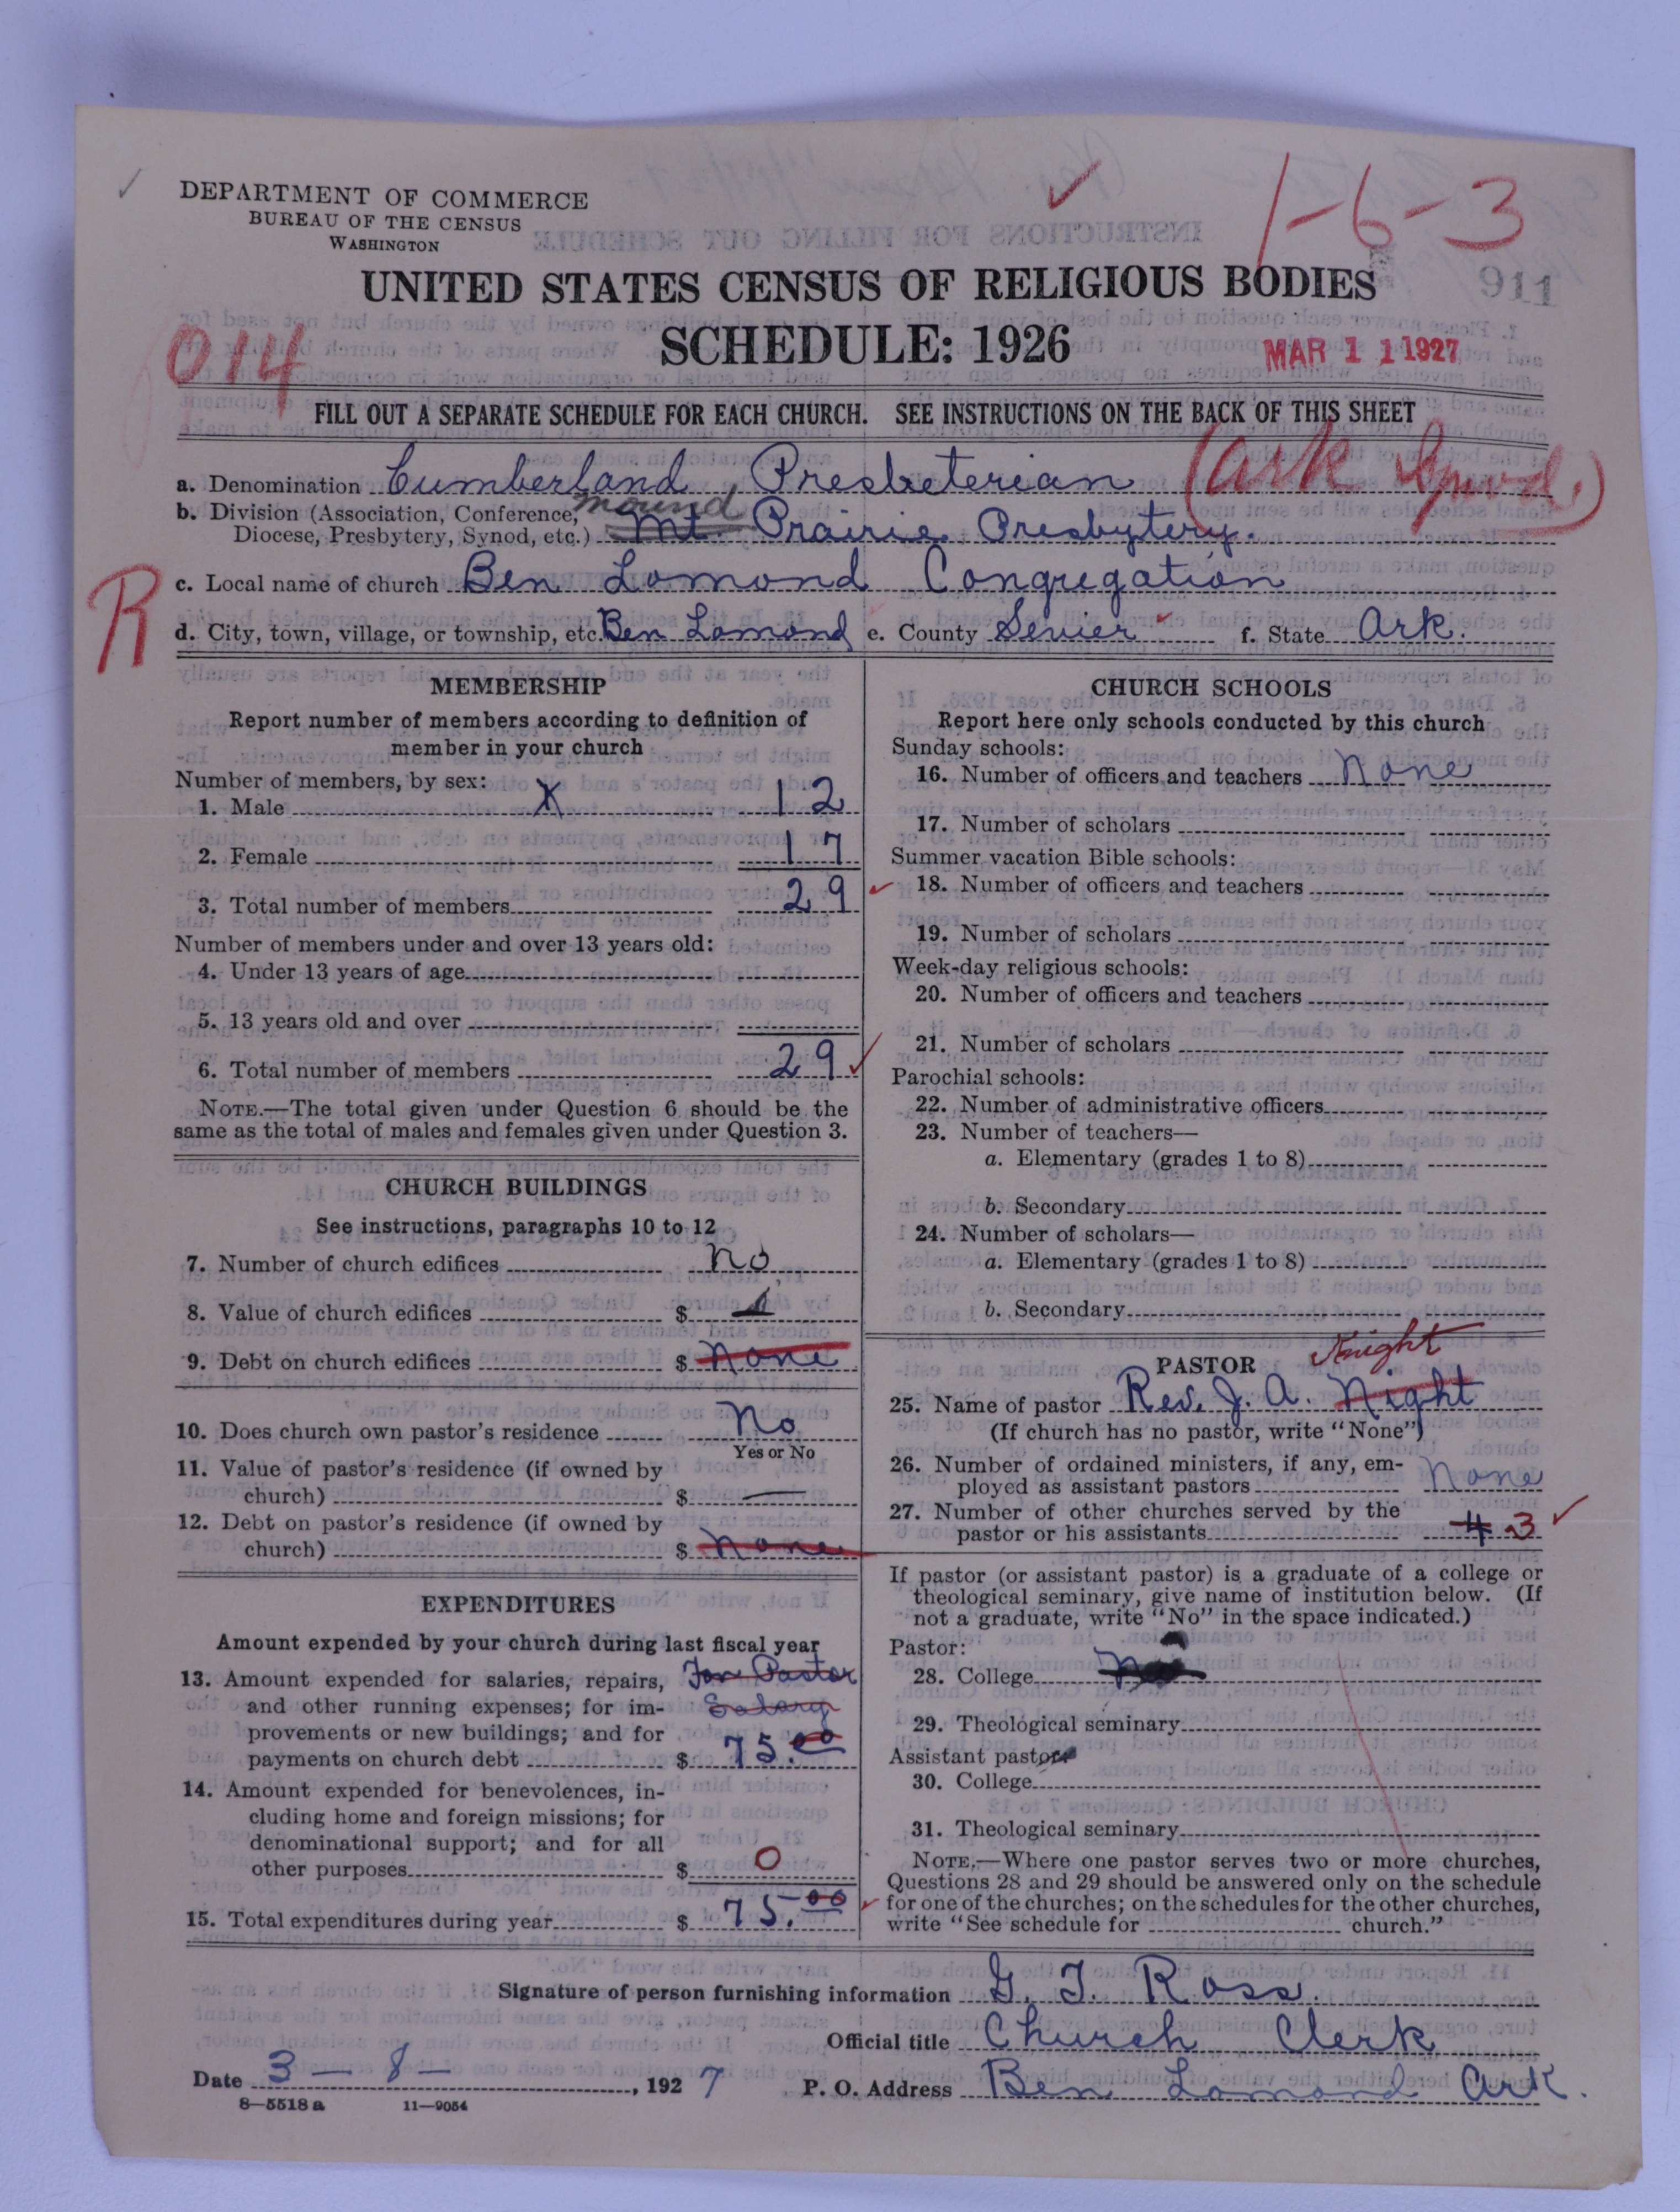 DEPARTMENT OF COMMERCE
BUREAU OF THE CENSUS
WASHINGTON
1-6-3
911
UNITED STATES CENSUS OF RELIGIOUS BODIES
SCHEDULE: 1926
014
MAR 11 1927
FILL OUT A SEPARATE SCHEDULE FOR EACH CHURCH. SEE INSTRUCTIONS ON THE BACK OF THIS SHEET
(Ark Synod.)
a. Denomination Cumberland Presbeterian
b. Division (Association, Conference, mound
Diocese, Presbytery, Synod, etc.) Mt. Prairie Presbytery.
R
c. Local name of church Ben Lomond Congregation
d. City, town, village, or township, etc. Ben Lomond e. County Sevier f. State Ark.
MEMBERSHIP
Report number of members according to definition of
member in your church
Number of members, by sex:
1. Male X 12
2. Female 17
3. Total number of members 29
Number of members under and over 13 years old:
4. Under 13 years of age
5. 13 years old and over
6. Total number of members 29
NOTE.—The total given under Question 6 should be the
same as the total of males and females given under Question 3.
CHURCH BUILDINGS
See instructions, paragraphs 10 to 12
7. Number of church edifices No
8. Value of church edifices $
9. Debt on church edifices $ None
10. Does church own pastor's residence No
Yes or No
11. Value of pastor's residence (if owned by
church) $ —
12. Debt on pastor's residence (if owned by
church) $ None
EXPENDITURES
Amount expended by your church during last fiscal year
13. Amount expended for salaries, repairs, For Pastor
and other running expenses; for im- Salary
provements or new buildings; and for
payments on church debt $ 75.00
14. Amount expended for benevolences, in-
cluding home and foreign missions; for
denominational support; and for all
other purposes $ 0
15. Total expenditures during year $ 75.00
CHURCH SCHOOLS
Report here only schools conducted by this church
Sunday schools:
16. Number of officers and teachers None
17. Number of scholars
Summer vacation Bible schools:
18. Number of officers and teachers
19. Number of scholars
Week-day religious schools:
20. Number of officers and teachers
21. Number of scholars
Parochial schools:
22. Number of administrative officers
23. Number of teachers—
a. Elementary (grades 1 to 8)
b. Secondary
24. Number of scholars—
a. Elementary (grades 1 to 8)
b. Secondary
PASTOR Knight
25. Name of pastor Rev. J. A. Night
(If church has no pastor, write "None")
26. Number of ordained ministers, if any, em-
ployed as assistant pastors None
27. Number of other churches served by the
pastor or his assistants 4 3
If pastor (or assistant pastor) is a graduate of a college or
theological seminary, give name of institution below. (If
not a graduate, write "No" in the space indicated.)
Pastor:
28. College
29. Theological seminary
Assistant pastor
30. College
31. Theological seminary
NOTE.—Where one pastor serves two or more churches,
Questions 28 and 29 should be answered only on the schedule
for one of the churches; on the schedules for the other churches,
write "See schedule for church."
Signature of person furnishing information G. T. Ross.
Official title Church Clerk
Date 3 - 8 - , 1927 P. O. Address Ben Lomond Ark.
8—5518 a 11—9054